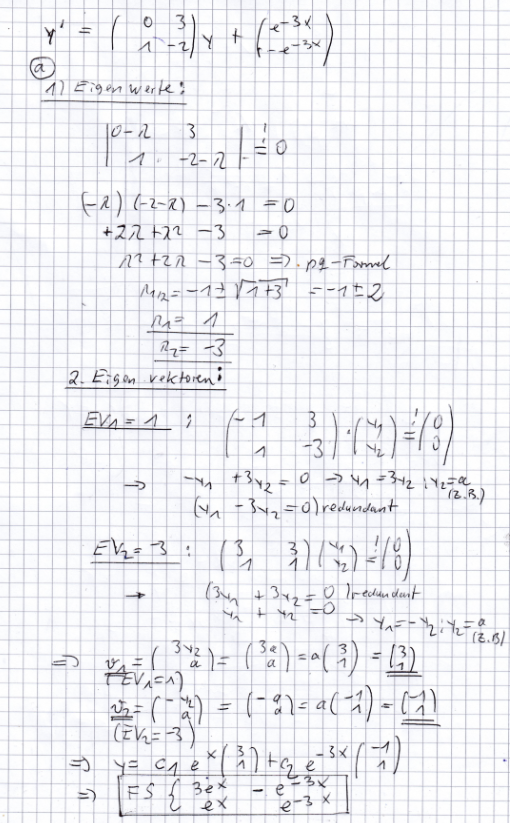 y' = ( 0 3 ; 1 -2 ) y + ( e^-3x ; -e^-3x )
a
1) Eigenwerte:
| 0-λ 3 ; 1 -2-λ | =! 0
(-λ) (-2-λ) - 3·1 = 0
+2λ+λ² - 3 = 0
λ²+2λ - 3=0 => pq-Formel
λ1/2 = -1 ± √1+3 = -1 ± 2
λ1 = 1
λ2 = -3
2. Eigenvektoren:
EV1 = 1 : ( -1 3 ; 1 -3 ) · ( v1 ; v2 ) =! ( 0 ; 0 )
→ -v1 + 3v2 = 0 → v1 = 3v2 ; v2 = a (z.B.)
(v1 - 3v2 = 0) redundant
EV2 = -3 : ( 3 3 ; 1 1 ) ( v1 ; v2 ) =! ( 0 ; 0 )
→ (3v1 + 3v2 = 0) redundant
v1 + v2 = 0 → v1 = -v2 ; v2 = a (z.B)
=> v1 = ( 3v2 ; a ) = ( 3a ; a ) = a ( 3 ; 1 ) = ( 3 ; 1 )
(EV1=1)
v2 = ( -v2 ; a ) = ( -a ; a ) = a ( -1 ; 1 ) = ( -1 ; 1 )
(EV2=-3)
=> y = c1 e^x ( 3 ; 1 ) + c2 e^-3x ( -1 ; 1 )
=> FS { 3e^x - e^-3x ; e^x e^-3x